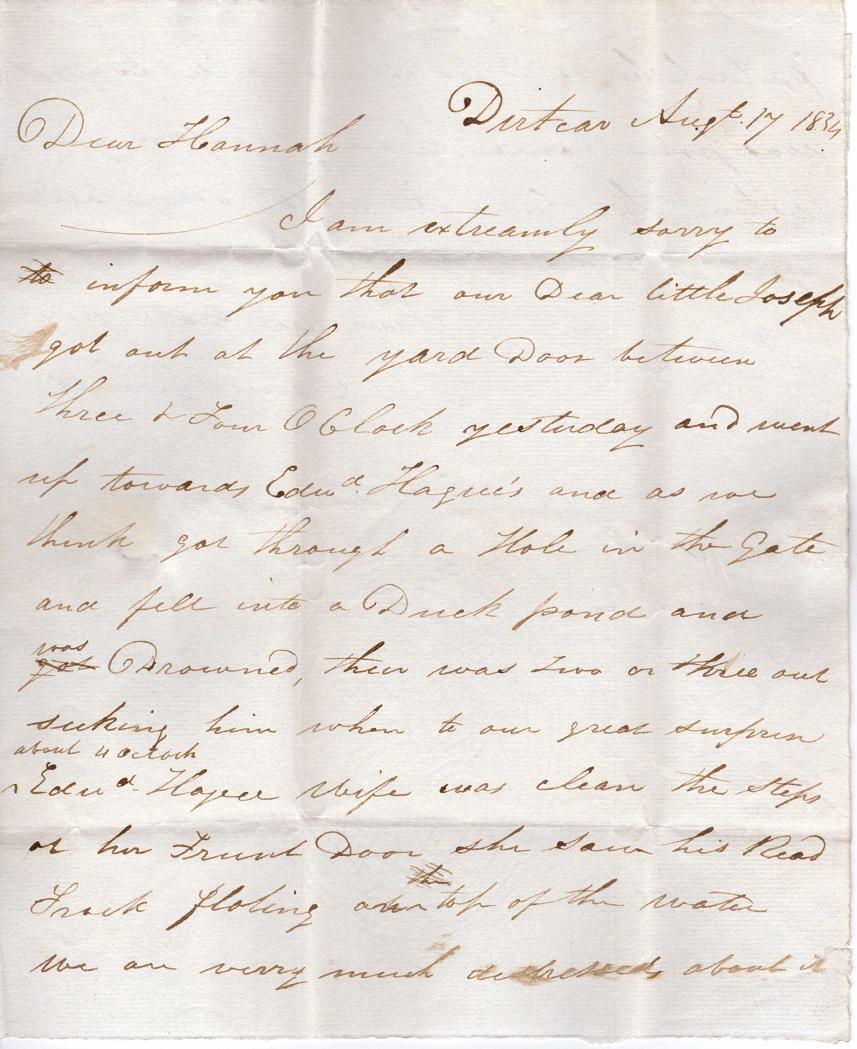 Dirtcar Augt. 17 1834
Dear Hannah
I am extreamly sorry to
to inform you that our Dear little Joseph
got out at the yard Door between
three & Four O Clock yesterday and went
up towards Edwd. Hague's and as we
think got through a Hole in the Gate
and fell into a Duck pond and
was
got Drowned, their was two or three out
seeking him when to our great surprise
about 4 oclock
Edwd. Hague Wife was clean the steps
at her Frunt Door she saw his Read
Frock floting on the top of the water
we are verry much distressed about it